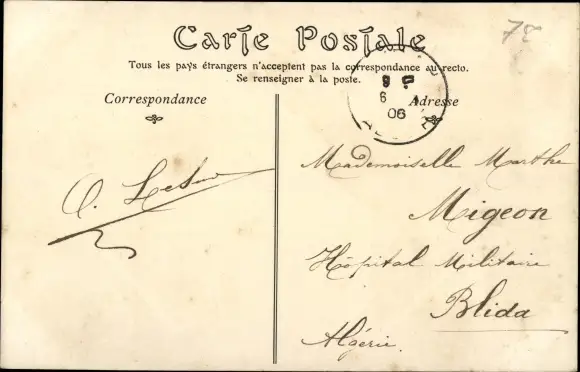 78
Carte Postale
Tous les pays étrangers n'acceptent pas la correspondance au recto.
Se renseigner à la poste.
Correspondance
Adresse
6
06
Mademoiselle Marthe
Migeon
Hôpital Militaire
Blida
Algérie.